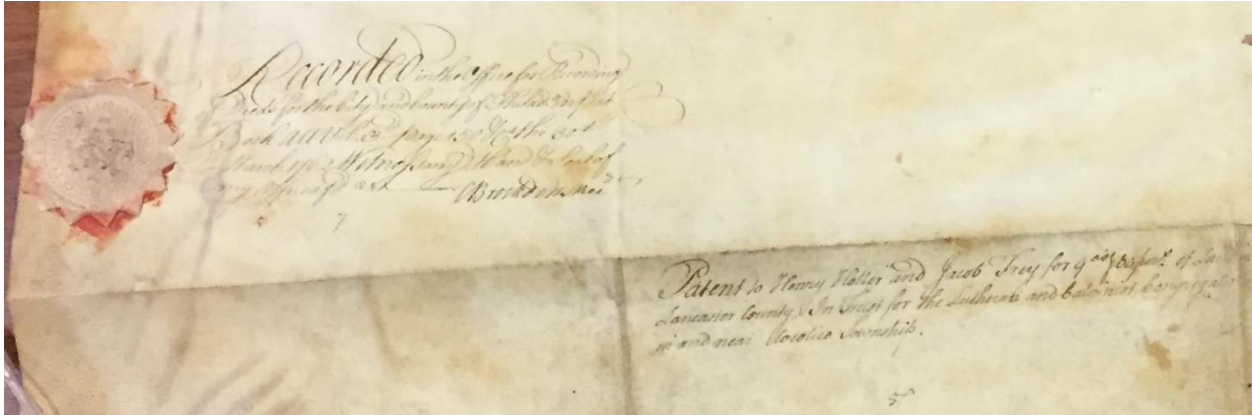 Recorded in the Office for Recording
Deeds for the City and County of Philada in Pat
Book page 150 the 30th
March Witness my Hand & Seal of
my Office
CBrockden Recr
Patent to Henry Holler and Jacob Frey for 9 of Land
Lancaster County, In Trust for the Lutheran and Calvinist Congregatio
in and near Cocolico Township.